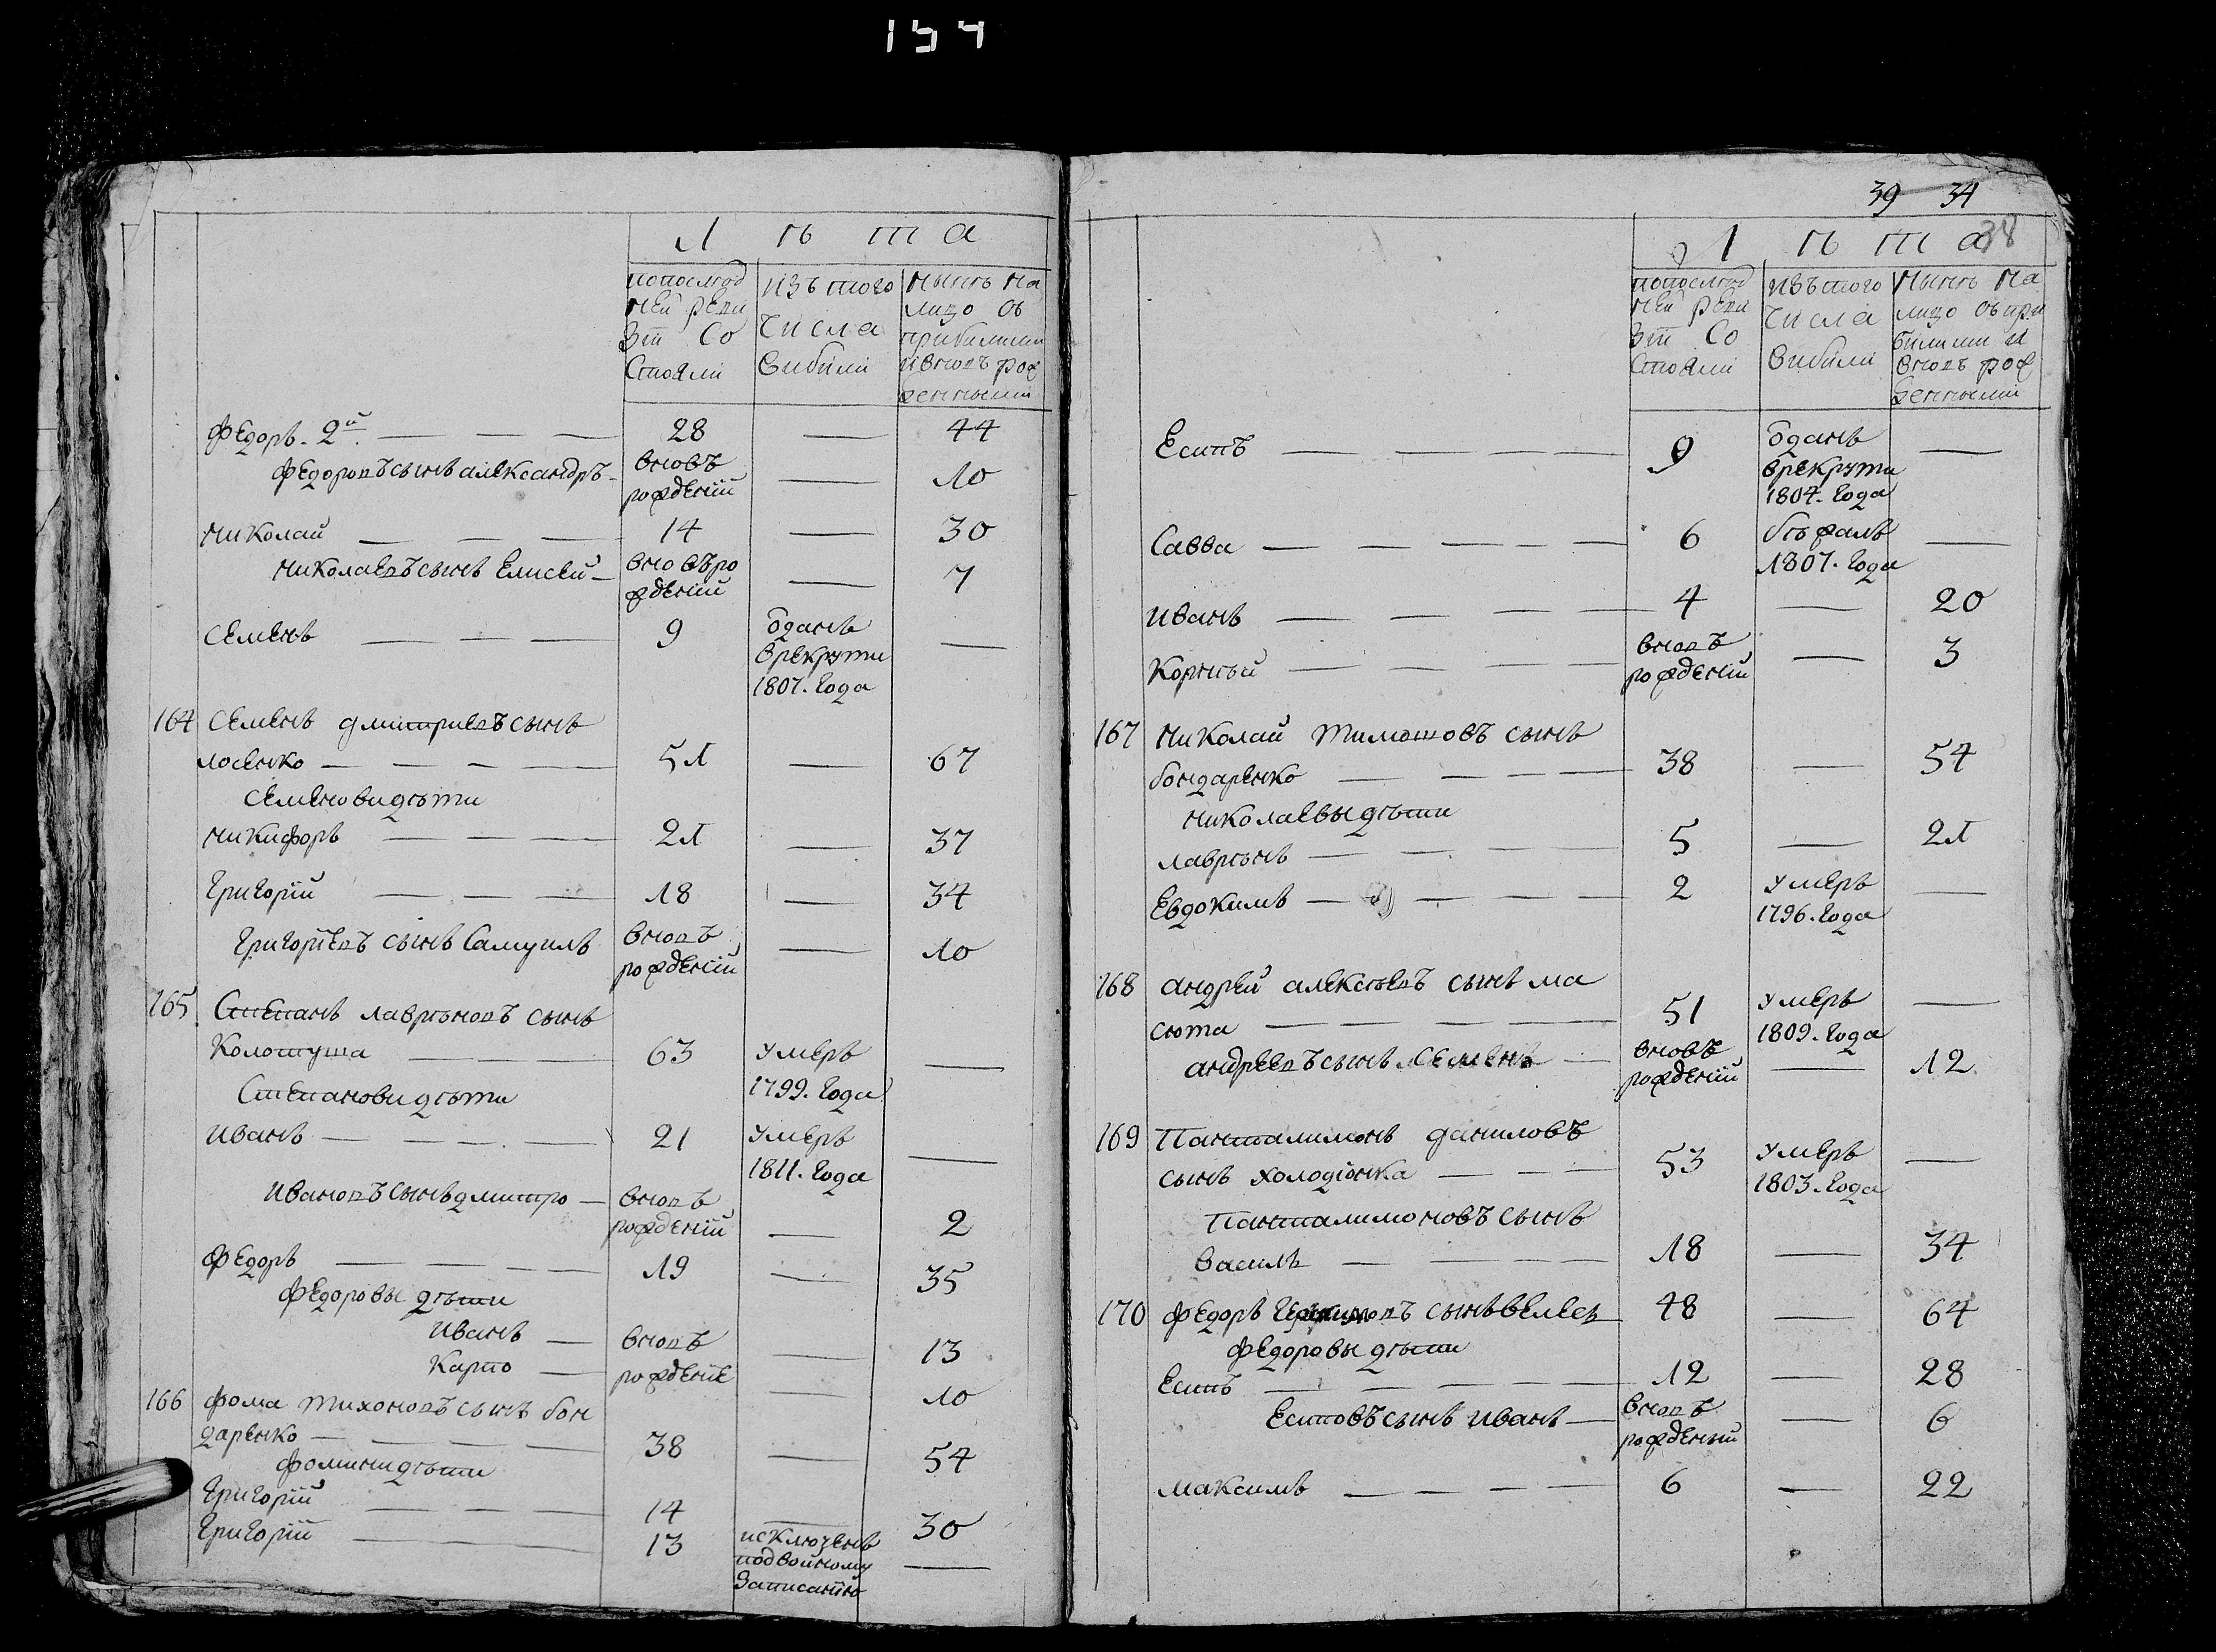 154
Лѣта
попослѣд
ней реви
зіи Со
Стояли
изъ того
числа
выбыли
нынѣ на
лицо съ
прибылыми
и вновь рож
денными
Федоръ 2й 28 — 44
Федоровъ сынъ александръ вновь
рожденій — 10
николай 14 — 30
николаевъ сынъ Елисей вновь ро
жденій — 7
Семенъ 9 отданъ —
в рекруты
1807. года
164 Семенъ дмитриевъ сынъ
лосенко 51 — 67
Семенови дѣти
никифоръ 21 — 37
григорій 18 — 34
григорієвъ сынъ Самуилъ вновь
рожденій — 10
165 Степанъ лаврѣновъ сынъ
Колотуша 63 умеръ —
1799. года
Степанови дѣти
иванъ 21 умеръ —
1811. года
ивановъ сынъ дмитро вновь
рожденій — 2
Федоръ 19 — 35
Федоровы дѣти
иванъ вновь — 13
Карпо рожденіе — 10
166 фома тихоновъ сынъ бон
даренко 38 — 54
фомини дѣти
григорій 14 — 30
григорій 13 исключенъ —
подвойному
записанію
39 34
38
Лѣта
попослѣд
ней реви
зіи Со
Стояли
изъ того
числа
выбыли
нынѣ на
лицо съ при
былыми и
вновь рож
денными
Есипъ 9 отданъ —
в рекруты
1804. года
Савва 6 бѣжалъ —
1807. года
иванъ 4 — 20
Корнѣй вновь
рожденій — 3
167 николай тимошовъ сынъ
бондаренко 38 — 54
николаевы дѣти
лаврѣнъ 5 — 21
Евдокимъ 2 умеръ —
1796. года
168 андрей алексѣевъ сынъ ма
сюта 51 умеръ —
1809. года
андреевъ сынъ Семенъ вновь
рожденій — 12
169 Панталимонъ даниловъ
сынъ холодінка 53 умеръ —
1803. года
Панталимоновъ сынъ
василь 18 — 34
170 федоръ сынъ 48 — 64
Федоровы дѣти
Есипъ 12 — 28
Есиповъ сынъ иванъ вновь
рожденый — 6
максимъ 6 — 22